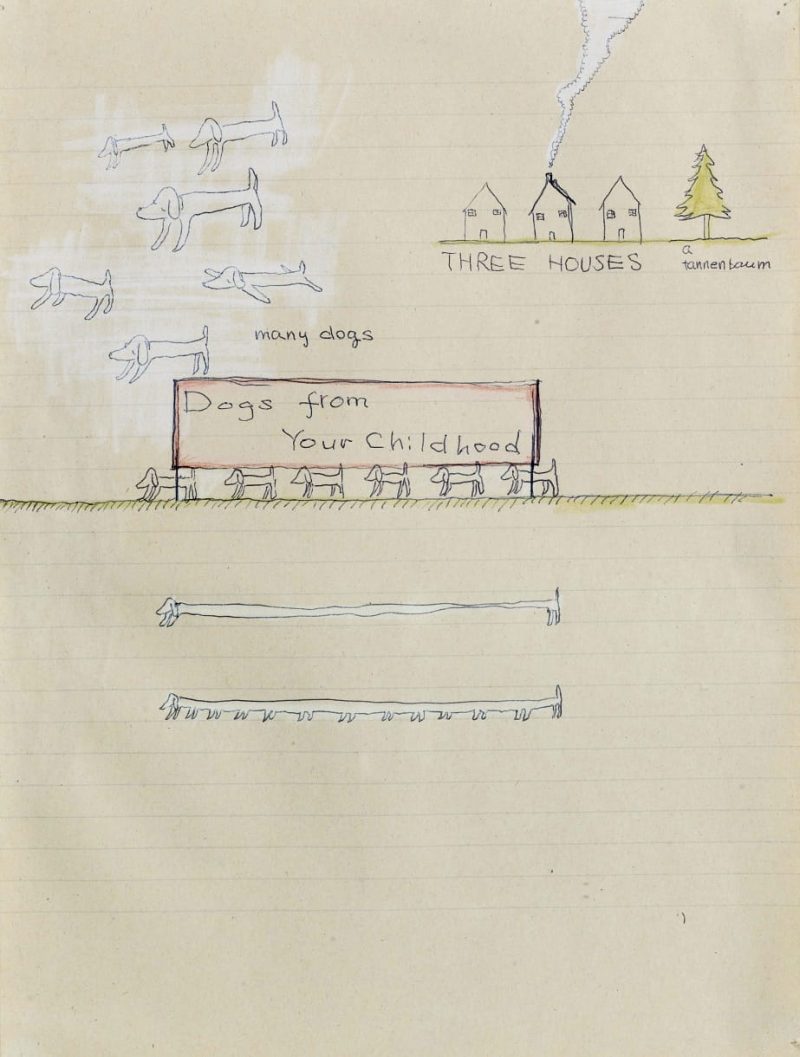 THREE HOUSES
a
tannenbaum
many dogs
Dogs from
Your Childhood